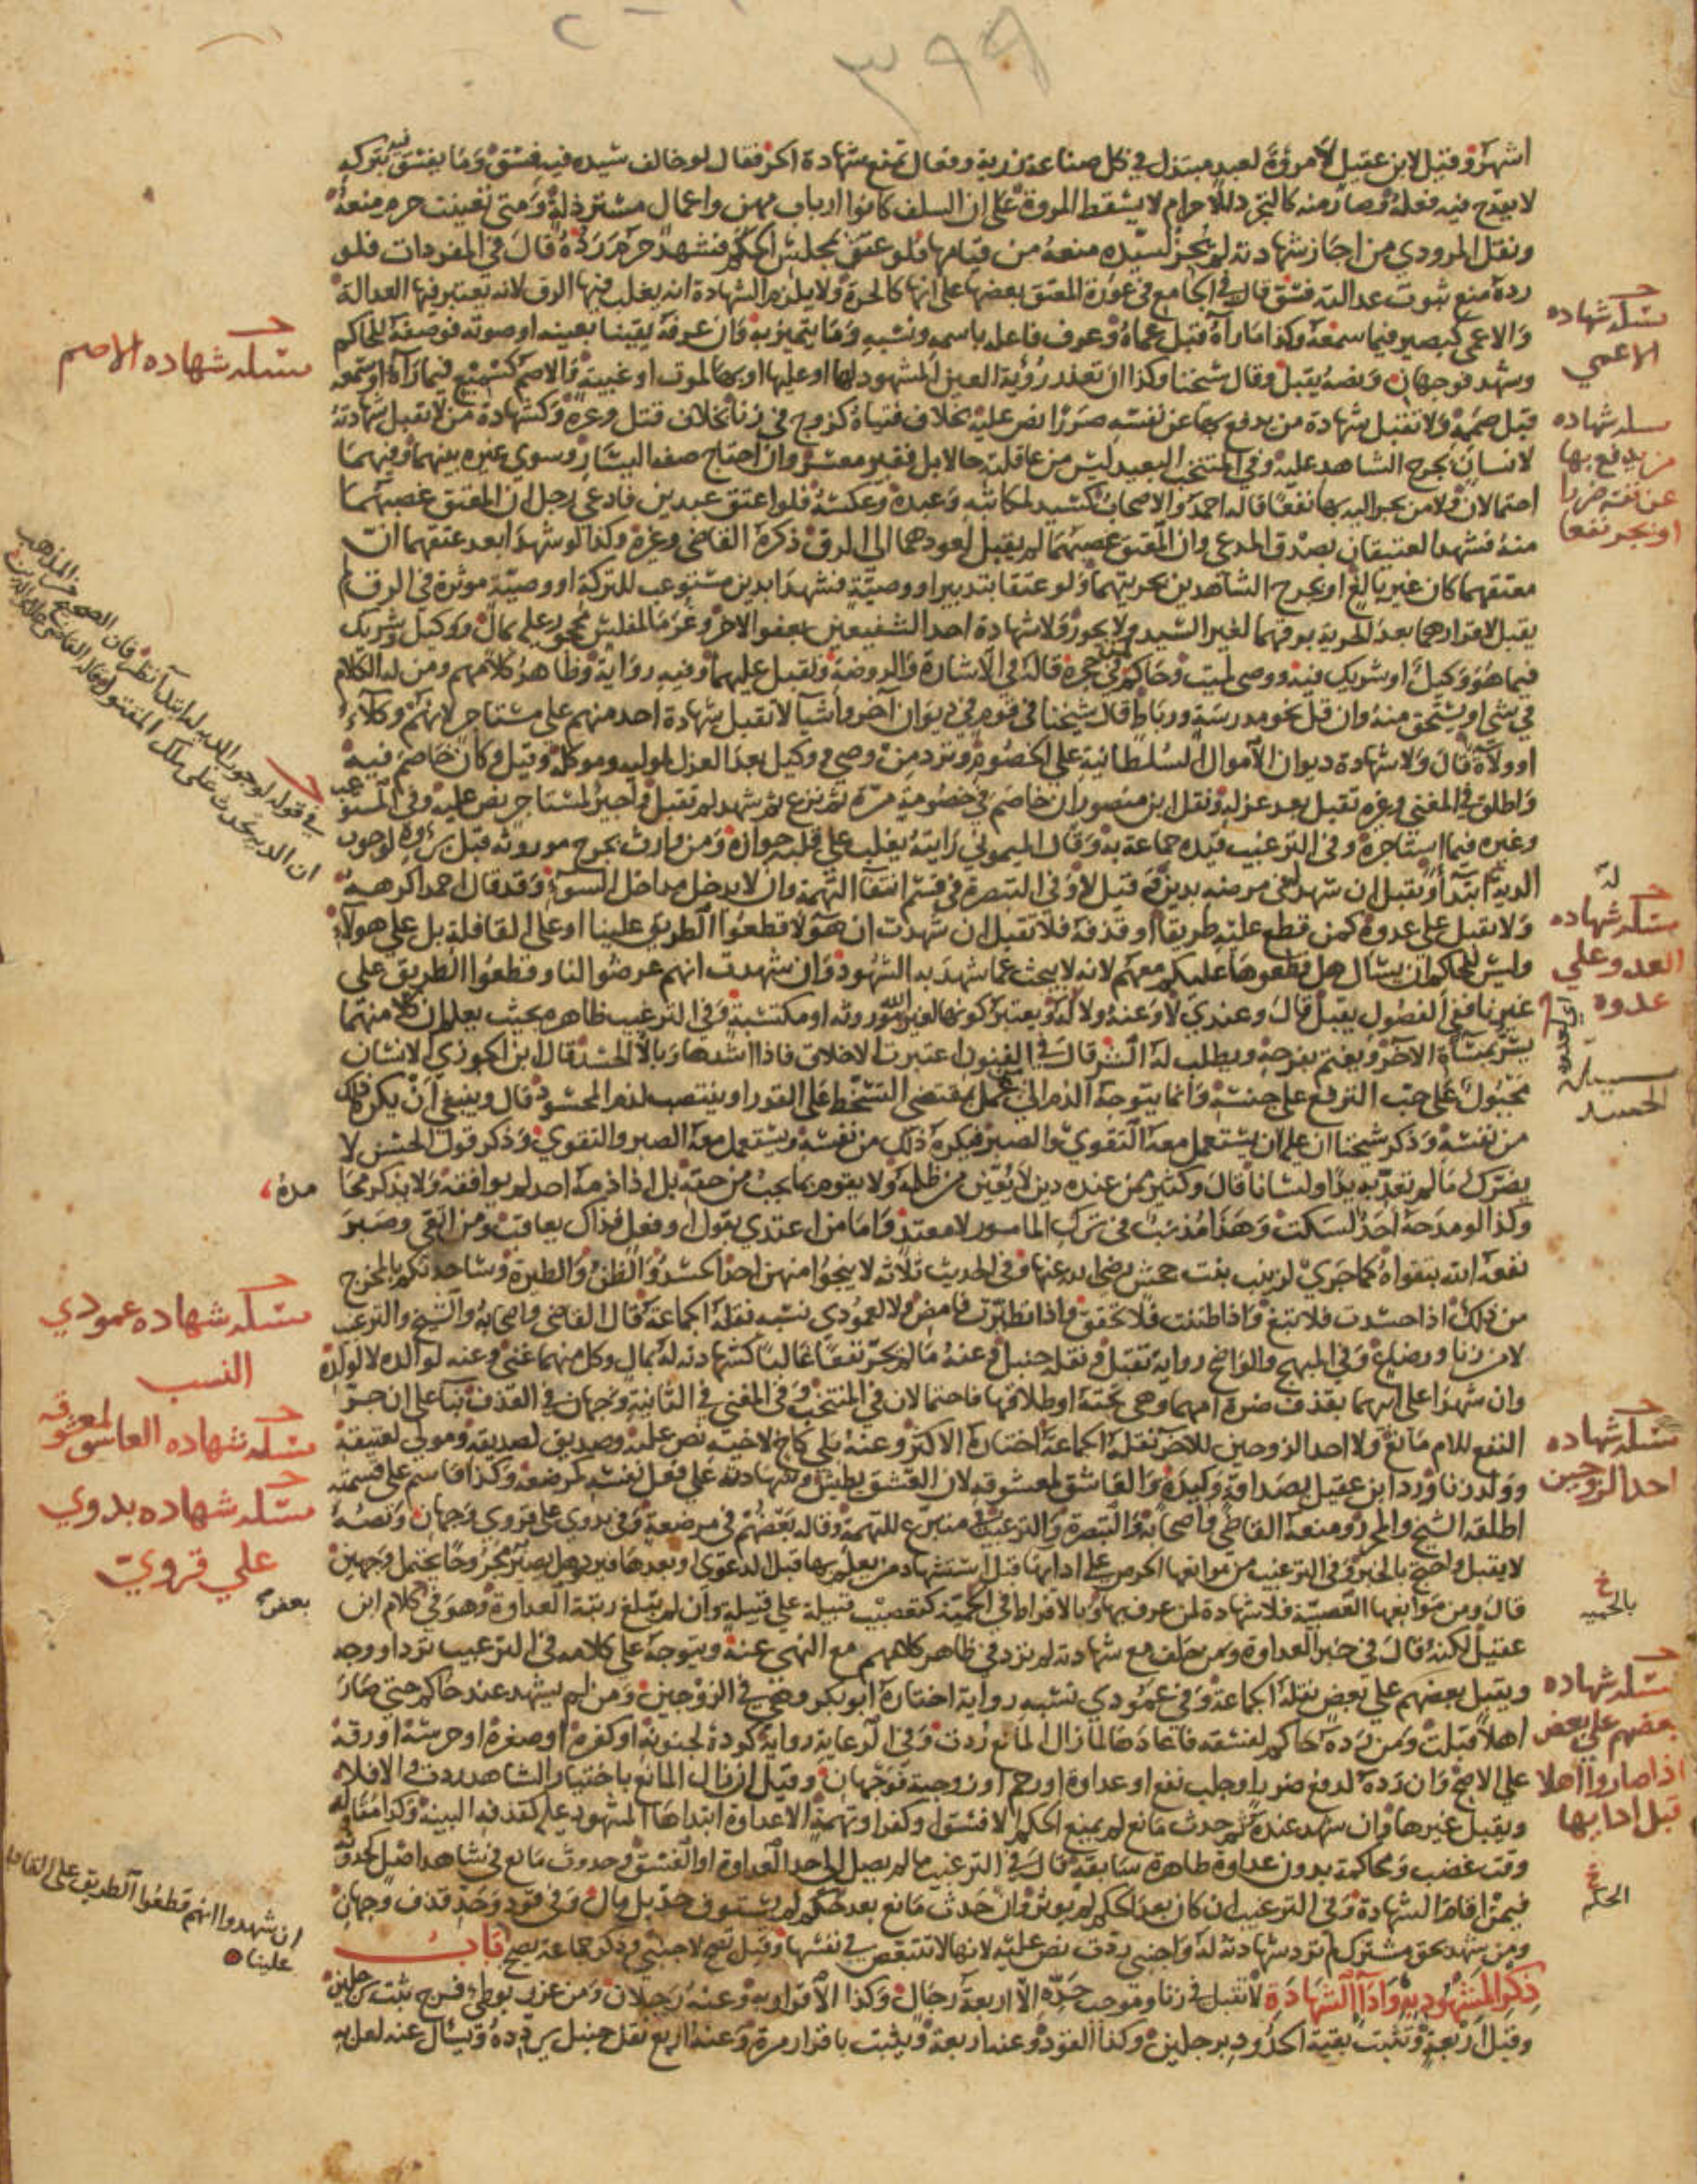 ٣٩٩
اشهر وقيل لابن عقيل لا مروة لعبد مبتذل في كل صناعة زرية وفعال تمنع شهادة الحر فقال لو خالف سيده فيه فسق وما يفسق بتركه
لا يقدح فيه فعله وصار منه كالتجرد للاحرام لا يسقط المروة على ان السلف كانوا ارباب مهن واعمال مسترذلة ومتى تعينت حرم منعه
ونقل المروذي من اجاز شهادته لم يجز لسيده منعه من قيامها فلو عتق بمجلس الحكم فشهد حرم رده قال في المفردات فلو
رده مع ثبوت عدالته فسق قال في الجامع في عورة المعتق بعضها على انها كالحرة ولا يلزم الشهادة انه يغلب فيها الرق لانه تعتبر فيها العدالة
والاعمى كبصير فيما سمعه وكذا ما رآه قبل عماه وعرف فاعله باسمه ونسبه وما يتميز به وان عرفه يقينا بعينه او صوته فوصفه للحاكم
وشهد فوجهان ونصه يقبل وقال شيخنا وكذا ان تعذر رؤية العين المشهود لها او عليها او بها لموت او غيبة والاصم كسميع فيما رآه او سمعه
قبل صممه ولا تقبل شهادة من يدفع بها عن نفسه ضررا نص عليه بخلاف فتياه كزوج في زنا بخلاف قتل وغيره وكشهادة من لا تقبل شهادته
لانسان بجرح الشاهد عليه وفي المنتخب البعيد ليس من عاقلته حالا بل فقير معسر وان احتاج صفة اليسار وسوى غيره بينهما وفيهما
احتمالان ولا من يجر اليه بها نفعا قاله احمد والاصحاب كسيد لمكاتبه وعبده وعكسه فلو اعتق عبدين فادعى رجل ان المعتق غصبهما
منه فشهد العتيقان بصدق المدعي وان المعتق غصبهما لم يقبل لعودهما الى الرق ذكره القاضي وغيره وكذا لو شهدا بعد عتقهما ان
معتقهما كان غير بالغ او بجرح الشاهدين بحريتهما ولو عتقا بتدبير او وصية فشهدا بدين مستوعب للتركة او وصية موثرة في الرق لم
يقبل لاقرارهما بعد الحرية برقهما لغير السيد ولا يجوز ولا شهادة احد الشفيعين بعفو الاخر وغرما المفلس محجور عليه بمال ووكيل وشريك
فيما هو وكيل او شريك فيه ووصى لميت وحاكم لمن في حجره قاله في الاشارة والروضة وتقبل عليهما وفيه رواية وظاهر كلامهم ومن له الكلام
في شي او يستحق منه وان قل نحو مدرسة ورباط قال شيخنا في قوم في ديوان آجروا شيا لا تقبل شهادة احد منهم على مستاجر لانهم وكلا
او ولاة قال ولا شهادة ديوان الاموال السلطانية على الخصوم وترد من وصي ووكيل بعد العزل لموليه وموكله وقيل وكان خاصم فيه
واطلق في المغني وغيره تقبل بعد عزله ونقل ابن منصور ان خاصم في خصومة مرة ثم نزع ثم شهد لم تقبل واجير لمستاجر نص عليه وفي المستوعب
وغيره فيما استاجره وفي الترغيب قيده جماعة به وقال الميموني رايته يغلب على قلبه جوازه ومن وارث بجرح موروثه قبل برؤه لوجوب
الدية له ابتدأ وتقبل ان شهد له في مرضه بدين وقيل لا وفي التبصرة في قسم انتفا التهمة وان لا يدخل مداخل السوء وقد قال احمد اكرهه
ولا يقبل على عدوه كمن قطع عليه طريقا او قذفه فلا تقبل ان شهدت ان هولا قطعوا الطريق علينا او على القافلة بل على هولاء
وليس للحاكم ان يسال هل قطعوها عليكم معهم لانه لا يبحث عما شهد به الشهود وان شهدت انهم عرضوا لنا وقطعوا الطريق على
غيرنا ففي الفصول يقبل قال وعندي لا وعنه ولا له ويعتبر كونها لغير الله موروثه او مكتسبة وفي الترغيب ظاهره بحيث يعلم ان كلا منهما
يسر بمساة الآخر ويغتم بفرحه ويطلب له الشر قال في الفنون اعتبرت الاخلاق فاذا اشدها وبالا الحسد قال ابن الجوزي الانسان
مجبول على حب الترفع على جنسه وانما يتوجه الذم الى من عمل بمقتضى التسخط على القدر او ينتصب لذم المحسود قال وينبغي ان يكره ذلك
من نفسه وذكر شيخنا ان عليه ان يستعمل معه التقوى والصبر فيكره ذلك من نفسه ويستعمل معه الصبر والتقوى وذكر قول الحسن لا
يضرك ما لم تعد به يدا ولسانا قال وكثير ممن عنده دين لا يعين من ظلمه ولا يقوم بما يجب من حقه بل اذا ذمه احد لم يوافقه ولا يذكر محا
مده
وكذا لو مدحه احد لسكت وهذا مذنب في ترك المامور لا معتد واما من اعتدى بقول او فعل فذاك يعاقب ومن اتقى وصبر
نفعه الله بتقواه كما جرى لزينب بنت جحش رضي الله عنها وفي الحديث ثلاثه لا ينجو منهن احد الحسد والظن والطيرة وساحدثكم بالمخرج
من ذلك اذا حسدت فلا تبغ واذا ظننت فلا تحقق واذا تطيرت فامض ولا لعمودي نسبه نقله الجماعة قال القاضي واصحابه والشيخ والترغيب
لا من زنا ورضاع وفي المبهج والواضح رواية تقبل ونقله حنبل وعنه ما لم يجر نفعا غالبا كشهادته له بمال وكل منهما غني وعنه لوالده لا لولده
وان شهدا على ابيهما بقذف ضرة امهما وهي تحته او طلاقها فاحتمالان في المنتخب وفي المغني في الثانية وجهان في القذف بنا على ان جر
النفع للام مانع ولا احد الزوجين للاخر نقله الجماعة اختاره الاكثر وعنه بلى كاخ لاخيه نص عليه وصديق لصديقه ومولى لعتيقه
وولد زنا ورد ابن عقيل بصداقة وكيدة والعاشق لمعشوقه لان العشق يطيش وشهادته على فعل نفسه كمرضعة وكذا قاسم على قسمته
اطلقه الشيخ والمحرر ومنعه القاضي واصحابه والتبصرة والترغيب في متبرع للتهمة وقاله بعضهم في مرضعة وفي بدوي على قروي وجهان ونصه
لا يقبل واحتج بالخبر وفي الترغيب من موانعها الحرص على ادايها قبل استشهاد من يعلم بها قبل الدعوى او بعدها فيرد وهل يصير مجروحا يحتمل وجهين
قال ومن موانعها العصبية فلا شهادة لمن عرف بها وبالافراط في الحمية كتعصب قبيلة على قبيلة وان لم تبلغ رتبة العداوة وهو في كلام ابن
عقيل لكنه قال في حيز العداوة ومن حلف مع شهادته لم ترد في ظاهر كلامهم مع النهي عنه ويتوجه على كلامه في الترغيب ترد او وجه
ويقبل بعضهم على بعض نقله الجماعة وفي عمودي نسبه رواية اختاره ابو بكر ونصبه في الزوجين ومن لم يشهد عند حاكم حتى صار
اهلا قبلت ومن رده حاكم لفسقه فاعادها لما زال المانع ردت وفي الرعاية رواية كردة لجنونه او كفره او صغره او خرسه او رقه
على الاصح وان رده لدفع ضرر او جلب نفع او عداوة او رحم او زوجية فوجهان وقيل ان زال المانع باختيار الشاهد ردت والا فلا
ويقبل غيرها وان شهد عنده ثم حدث مانع لم يمنع الحكم الا فسق او كفر او تهمة الا عداوة ابتداها المشهود عليه كقذفه البينة وكذا مقاولة
وقت غضب ومحاكمة بدون عداوة ظاهرة سابقة قال في الترغيب ما لم يصل الى حد العداوة او الفسق وحدوث مانع في شاهد اصل كحدوثه
فيمن اقام الشهادة وفي الترغيب ان كان بعد الحكم لم يوثر وان حدث مانع بعد حكم لم يستوف حد بل مال وفي قود وحد قذف وجهان
ومن شهد بحق مشترك لم ترد شهادته له واجنبي ردت نص عليه لانها لا تتبعض في نفسها وقيل تصح لاجنبي وذكر جماعة تصح باب
ذكر المشهود به واداء الشهادة لا تقبل في زنا وموجب حده الا اربعة رجال وكذا الاقرار به وعنه رجلان ومن عزر بوطء فرج ثبت برجلين
وقيل اربعة وتثبت بقية الحدود برجلين وكذا القود وعنه اربعة ويثبت باقرار مرة وعنه اربع نقل حنبل يردده ويسال عنه لعل به
مسئله شهاده
الاعمى
مسئله شهاده الاصم
مسئله شهاده
من يدفع بها
عن نفسه ضررا
او يجر نفعا
في قوله لوجوب الدية له ابتدأ نظر فان الصحيح من المذهب
ان الدية تحدث على ملك المقتول
مسئله شهاده
العدو على
عدوه
الحسد
مسئله شهاده عمودي
النسب
مسئله شهاده العاشق لمعشوقه
مسئله شهاده بدوي
على قروي
مسئله شهاده
احد الزوجين
بالحميه
بعض
مسئله شهاده
بعضهم على بعض
اذا صاروا اهلا
قبل ادايها
الحكم
ان شهدوا انهم قطعوا الطريق على القافلة
علينا